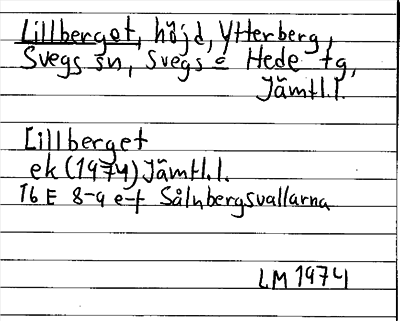 Lillberget, höjd, Ytterberg,
Svegs sn, Svegs o Hede tg,
Jämtl.l.
Lillberget
ek (1974) Jämtl.l.
16 E 8-9 e-f Sålnbergsvallarna
LM 1974